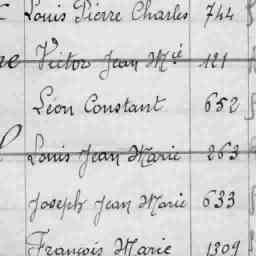 Louis Pierre Charles 744
Victor Jean M^ié 121
Léon Constant 652
Louis Jean Marie 263
Joseph Jean Marie 633
François Marie 1309